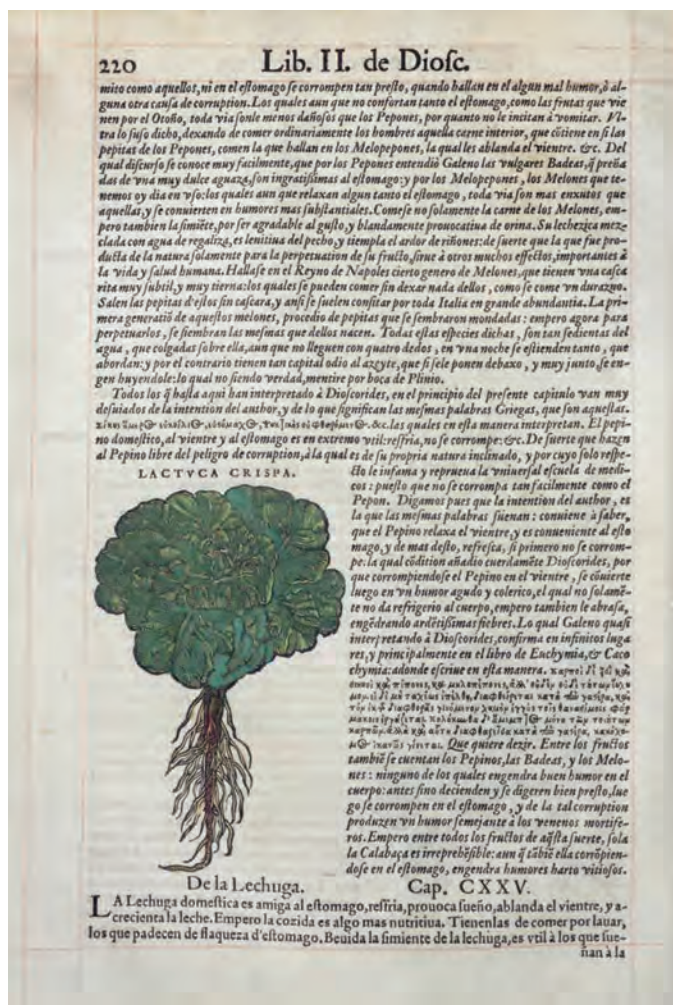 220 Lib. II. de Diosc.
miſo como aquellos,ni en el eſtomago ſe corrompen tan preſto, quando hallan en el algun mal humor,ò al-
guna otra cauſa de corruption.Los quales aun que no confortan tanto el eſtomago,como las frutas que vie
nen por el Otoño, toda via ſon le menos dañoſos que los Pepones, por quanto no le incitan à vomitar. Vl-
tra lo ſuſo dicho,dexando de comer ordinariamente los hombres aquella carne interior, que cōtiene en ſi las
pepitas de los Pepones, comen la que hallan en los Melopepones, la qual les ablanda el vientre. &c. Del
qual diſcurſo ſe conoce muy facilmente,que por los Pepones entendiò Galeno las vulgares Badeas,q̃ preña
das de vna muy dulce aguaza,ſon ingratiſsimas al eſtomago:y por los Melopepones, los Melones que te-
nemos oy dia en vſo:los quales aun que relaxan algun tanto el eſtomago , toda via ſon mas enxutos que
aquellas,y ſe conuierten en humores mas ſubſtantiales.Comeſe no ſolamente la carne de los Melones, em-
pero tambien la ſimiẽte,por ſer agradable al guſto,y blandamente prouocatiua de orina. Su lechezica mez
clada con agua de regaliza,es lenitiua del pecho,y tiempla el ardor de riñones:de ſuerte que la que fue pro-
ducta de la natura ſolamente para la perpetuation de ſu fructo,ſirue à otros muchos effectos,importantes à
la vida y ſalud humana. Hallaſe en el Reyno de Napoles cierto genero de Melones,que tienen vna caſca
rita muy ſubtil,y muy tierna:los quales ſe pueden comer ſin dexar nada dellos , como ſe come vn durazno.
Salen las pepitas d'eſtos ſin caſcara,y anſi ſe ſuelen confitar por toda Italia en grande abundantia. La pri-
mera generatiō de aqueſtos melones, procedio de pepitas que ſe ſembraron mondadas : empero agora para
perpetuarlos , ſe ſiembran las meſmas que dellos nacen. Todas eſtas eſpecies dichas , ſon tan ſedientas del
agua , que colgadas ſobre ella,aun que no lleguen con quatro dedos , en vna noche ſe eſtienden tanto , que
abordan:y por el contrario tienen tal odio al azeyte,que ſi ſele ponen debaxo , y muy junto,ſe en-
gen huyendole:lo qual no ſiendo verdad,mentire por boca de Plinio.
Todos los q̃ haſta aqui han interpretado à Dioſcorides, en el principio del preſente capitulo van muy
deſuiados de la intention del author,y de lo que ſignifican las meſmas palabras Griegas, que ſon aqueſtas.
&c. las quales en eſta manera interpretan. El pepi-
no domeſtico,al vientre y al eſtomago es en extremo vtil:resfria,no ſe corrompe:&c. De ſuerte que hazen
al Pepino libre del peligro de corruption,à la qual es de ſu propria natura inclinado, y por cuyo ſolo reſpe-
LACTVCA CRISPA.
cto le infama y reprueua la vniuerſal eſcuela de medi-
cos : pueſto que no ſe corrompa tan facilmente como el
Pepon. Digamos pues que la intention del author , es
la que las meſmas palabras ſuenan : conuiene à ſaber,
que el Pepino relaxa el vientre,y es conueniente al eſto
mago,y de mas deſto, refreſca, ſi primero no ſe corrom-
pe:la qual cōdition añadio cuerdamẽte Dioſcorides, por
que corrompiendoſe el Pepino en el vientre , ſe cōuierte
luego en vn humor agudo y colerico,el qual no ſolamẽ-
te no da refrigerio al cuerpo,empero tambien le abraſa,
engẽdrando ardẽtiſsimas fiebres. Lo qual Galeno quaſi
interpretando à Dioſcorides,confirma en infinitos luga
res,y principalmente en el libro de Euchymia,& Caco
chymia:adonde eſcriue en eſta manera.
Que quiere dezir. Entre los fructos
tambiẽ ſe cuentan los Pepinos,las Badeas, y los Melo-
nes : ninguno de los quales engendra buen humor en el
cuerpo:antes ſino decienden y ſe digeren bien preſto,lue
go ſe corrompen en el eſtomago , y de la tal corruption
produzen vn humor ſemejante à los venenos mortife-
ros. Empero entre todos los fructos de aq̃ſta ſuerte, ſola
la Calabaça es irreprehẽſible:aun q̃ tābiẽ ella corrōpien-
doſe en el eſtomago, engendra humores harto vitioſos.
De la Lechuga. Cap. CXXV.
LA Lechuga domeſtica es amiga al eſtomago,resfria,prouoca ſueño,ablanda el vientre, y a-
crecienta la leche. Empero la cozida es algo mas nutritiua. Tienenlas de comer por lauar,
los que padecen de flaqueza d'eſtomago. Beuida la ſimiente de la lechuga,es vtil à los que ſue-
ñan à la